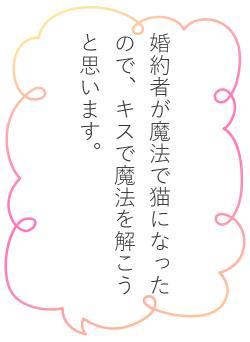 婚約者が魔法で猫になった
ので、キスで魔法を解こう
と思います。